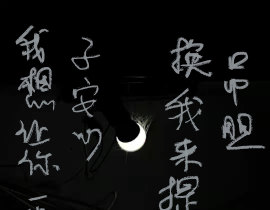 我想让你一
子安心
换我来提
吊胆